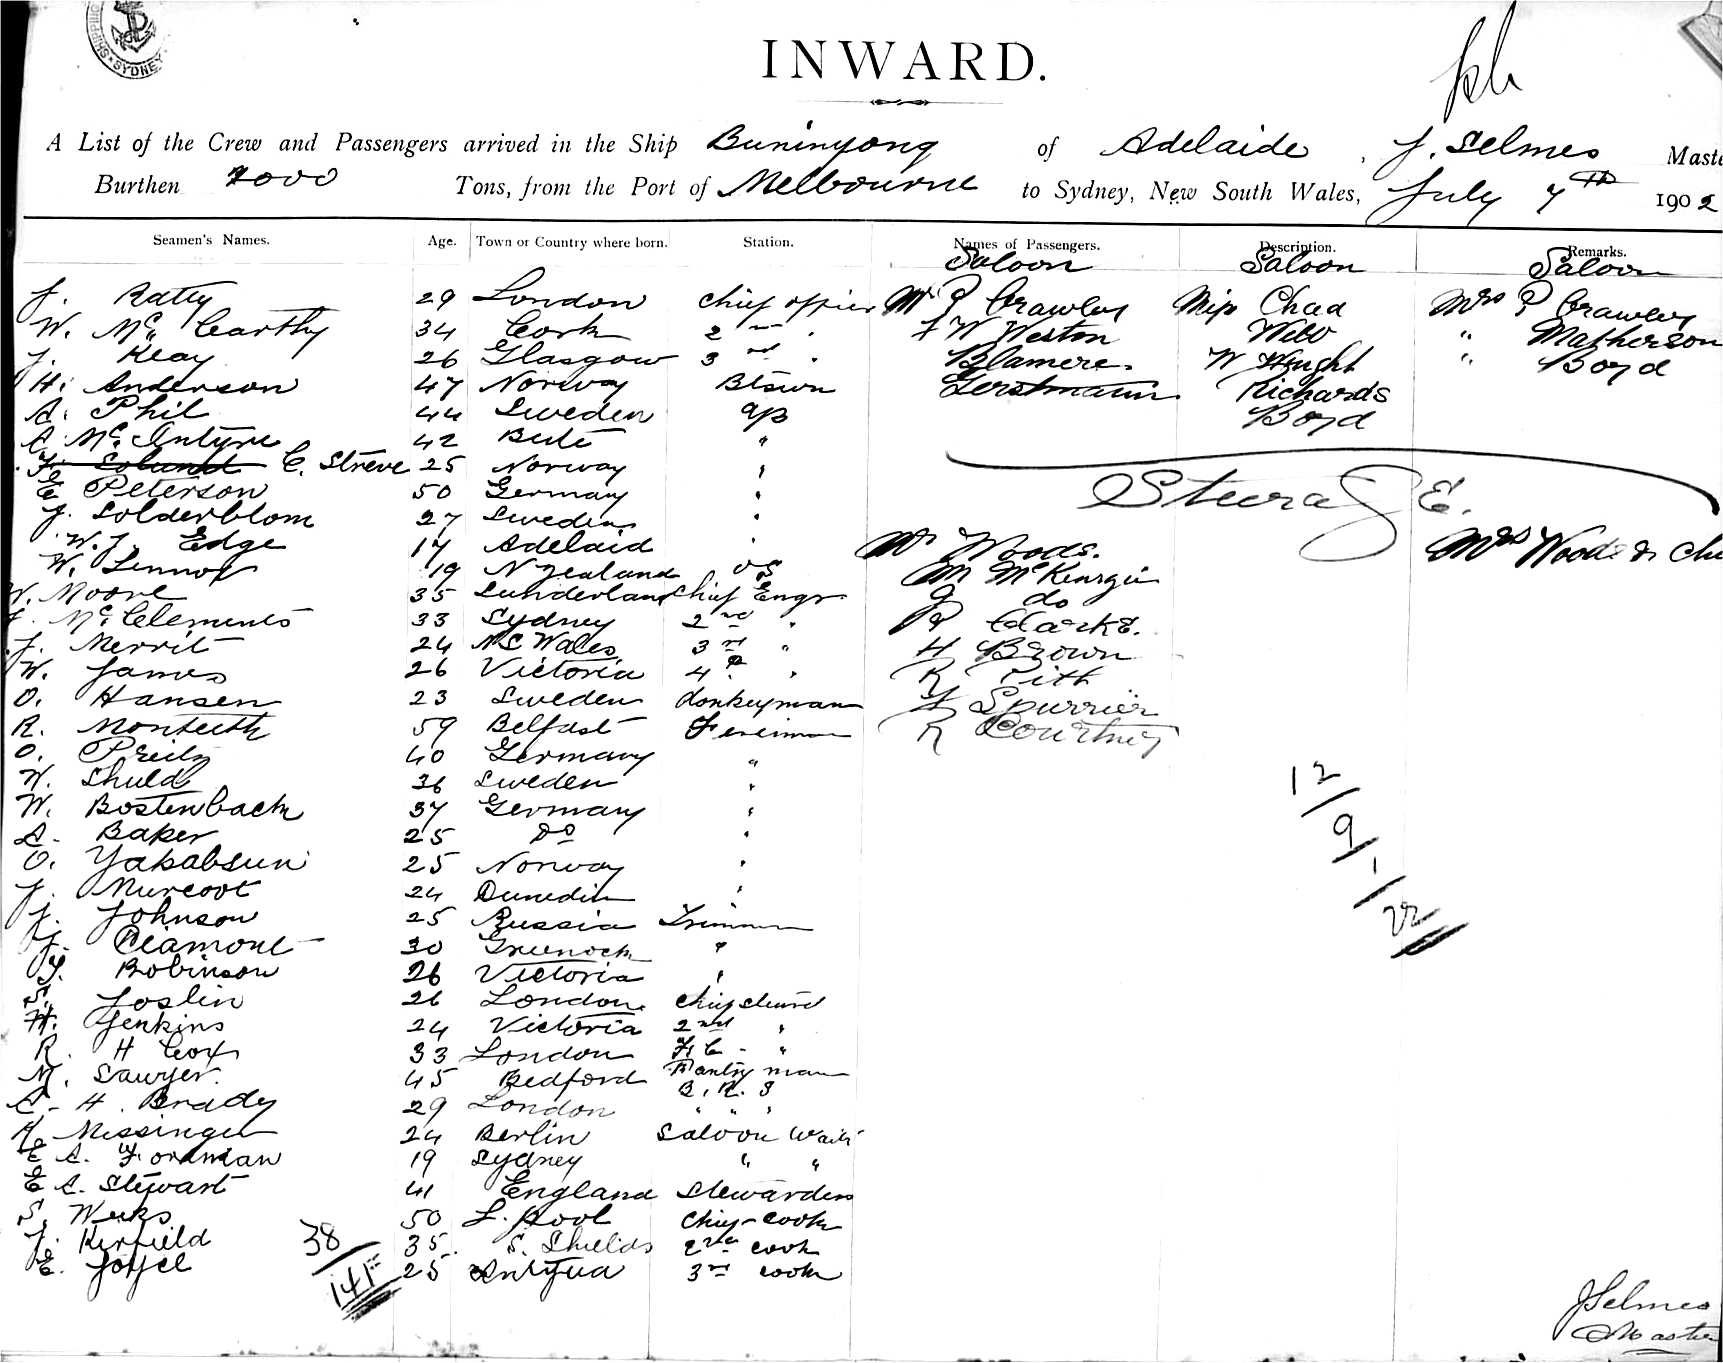 SHIPPING SYDNEY
INWARD.
A List of the Crew and Passengers arrived in the Ship Buninyong of Adelaide, J. Selmes Maste
Burthen 2000 Tons, from the Port of Melbourne to Sydney, New South Wales, July 7th 1902
Seamen's Names. Age. Town or Country where born. Station. Names of Passengers. Description. Remarks.
Saloon Saloon Saloon
J. Ratty 29 London chief officer Mr P Crawley Miss Chad Mrs P Crawley
W. Mc Carthy 34 Cork 2nd " F W Weston Webb " Matherson
J. Keay 26 Glasgow 3rd " Blamere. W Wright " Boyd
H. Anderson 47 Norway Btswn Gerstmann Richards
A. Phil 44 Sweden AB Boyd
A. Mc. Intyre 42 Bute "
C. Streve 25 Norway "
E. Peterson 50 Germany " Steerage.
J. Solderblom 27 Sweden "
W. J. Edge 17 Adelaid " Mr Woods. Mrs Woods & Chi
W. Lennox 19 N Zealand OS M McKenzie
W. Moore 35 Sunderland Chief Engr do
J. Mc Clements 33 Sydney 2nd " Clarke.
J. Merrit 24 N S Wales 3rd " H Brown
W. James 26 Victoria 4th " R Pitt
O. Hansen 23 Sweden donkeyman Spurrier
R. Monteith 59 Belfast Fireman R Courtney
O. Preitz 40 Germany "
W. Shuld 36 Sweden "
W. Bostenback 37 Germany "
A. Baker 25 Do "
O. Yakabsun 25 Norway "
J. Murcoot 24 Dunedin "
J. Johnson 25 Russia Trimmer
J. Diamont 30 Greenock "
Robinson 26 Victoria "
S. Joslin 26 London chief steward
H. Jenkins 24 Victoria 2nd "
R. H Cox 33 London F. C. "
M. Sawyer. 45 Bedford Pantry man
A. H. Brady 29 London B. R. S
Missinger 24 Berlin Saloon Waiter
E A. Fordman 19 Sydney " "
E A. Stewart 41 England Stewardess
S. Weeks 50 L. pool Chief cook
J. Kerfield 35 S. Shields 2nd cook
E. Joffel 25 Antigua 3rd cook
38
141
12/9-/22
J Selmes
Master